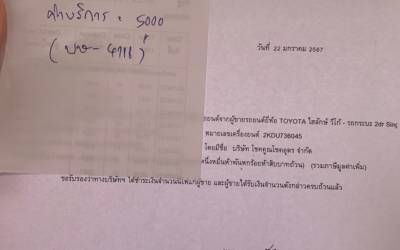 ค่าบริการ = 5000
วันที่ 22 มกราคม 2567
รถยนต์จากผู้ขายรถยนต์ยี่ห้อ TOYOTA ไฮลักซ์ วีโก้ - รถกระบะ 2dr
หมายเลขเครื่องยนต์ 2KDU736045
โดยมีชื่อ บริษัท โชคคูณโชคอุดร จำกัด
หนึ่งหมื่นห้าพันหกร้อยห้าสิบบาทถ้วน) (รวมภาษีมูลค่าเพิ่ม)
ขอรับรองว่าทางบริษัทฯ ได้ชำระเงินจำนวนนี้ให้แก่ผู้ขาย และผู้ขายได้รับเงินจำนวนดังกล่าวครบถ้วนแล้ว